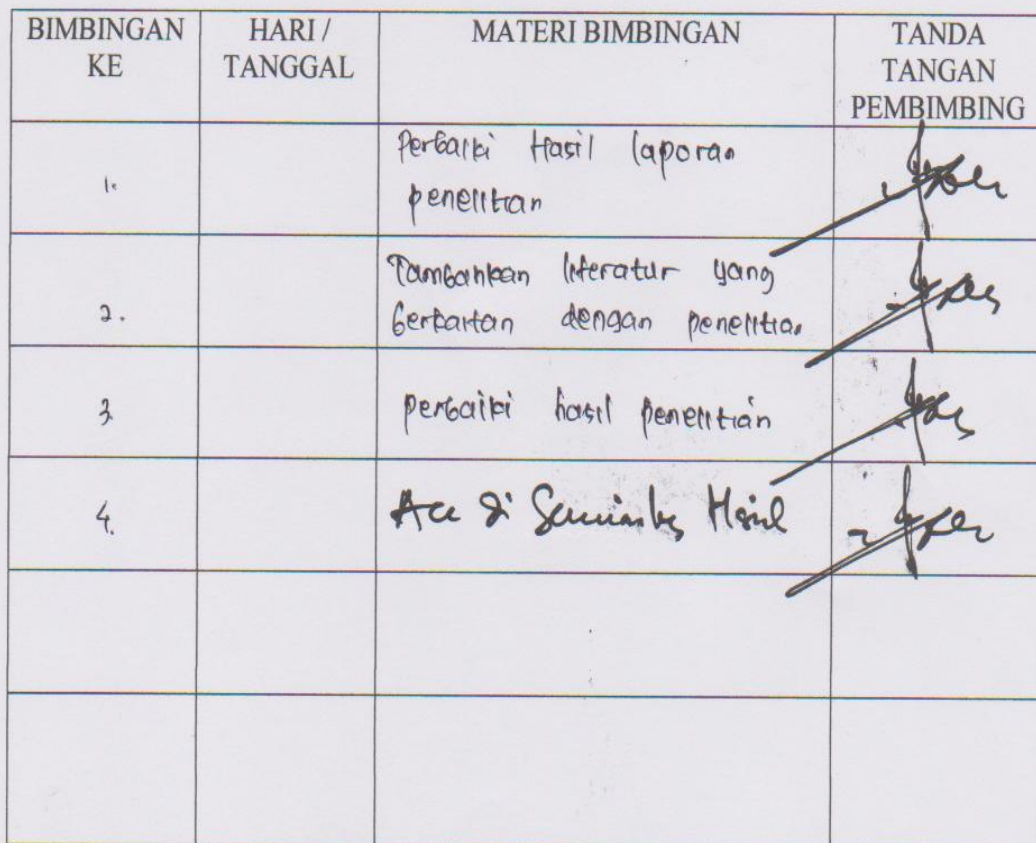 BIMBINGAN KE
HARI / TANGGAL
MATERI BIMBINGAN
TANDA TANGAN PEMBIMBING
1.
Perbaiki Hasil laporan
penelitian
2.
Tambahkan literatur yang
berkaitan dengan penelitian
3.
perbaiki hasil penelitian
4.
Acc di Seminarkan Hasil